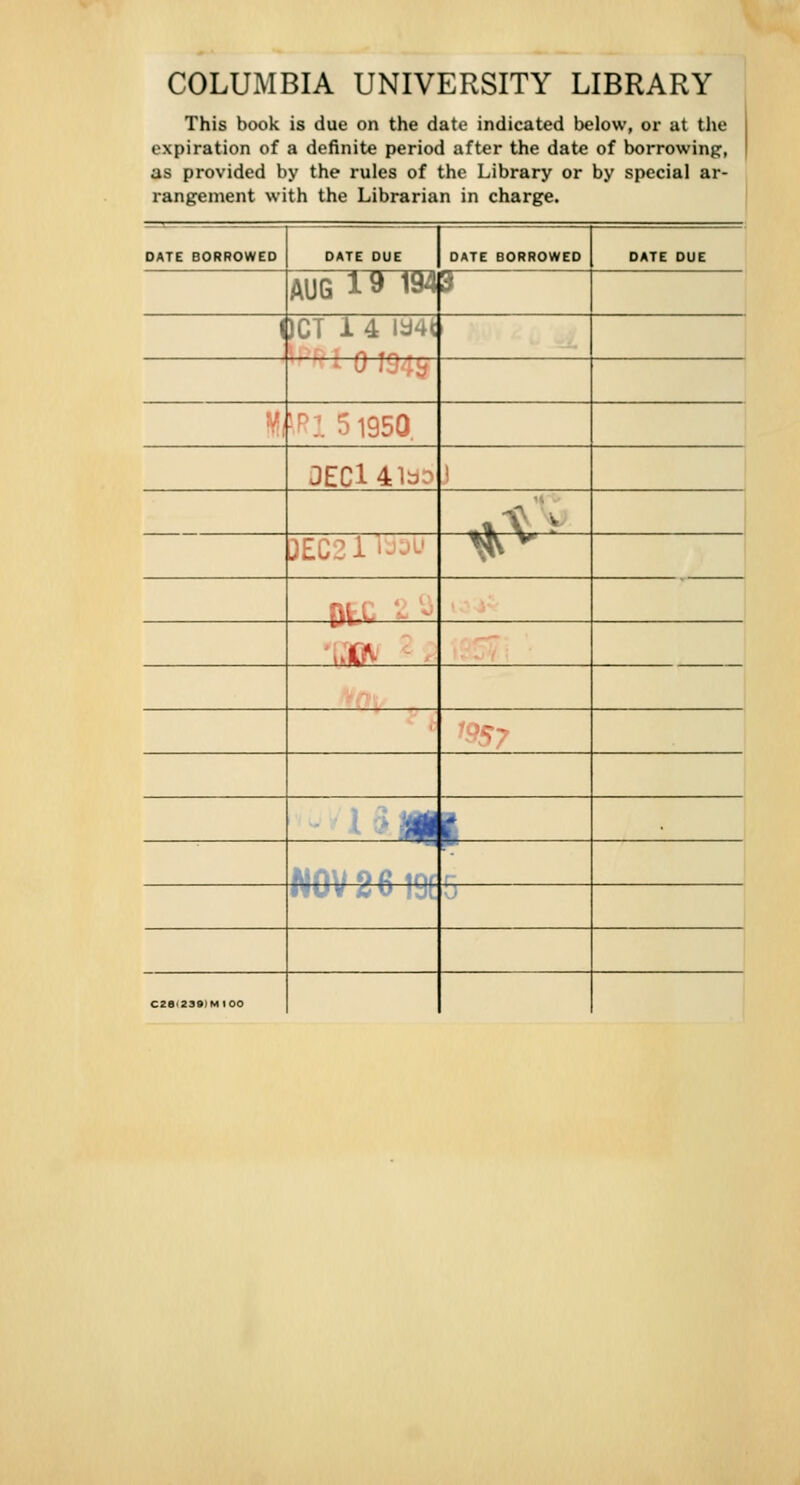 COLUMBIA UNIVERSITY LIBRARY
This book is due on the date indicated below, or at the
expiration of a definite period after the date of borrowing,
as provided by the rules of the Library or by special ar-
rangement with the Librarian in charge.
DATE BORROWED DATE DUE DATE BORROWED DATE DUE
AUG 19 1943
OCT 14 1946
0 1949
MAR15 1950
DEC14
DEC21 1950
DEC
1957
NOV
1957
NOV 26 1965
C28(239)M100